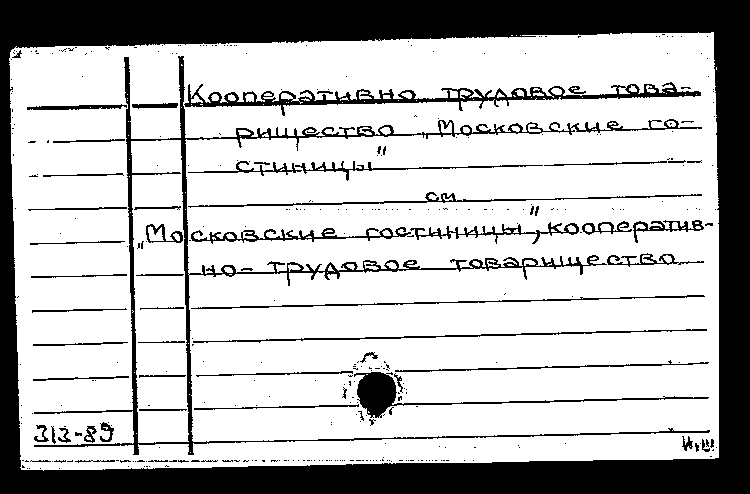 Кооперативно трудовое това-
рищество „Московские го-
стиницы"
см.
„Московские гостиницы", кооператив-
но-трудовое товарищество
313-89